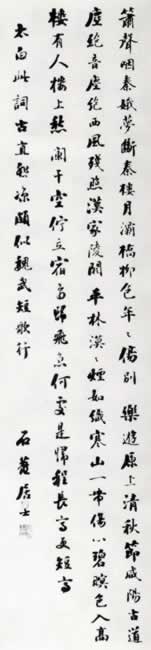 簫聲咽秦娥夢斷秦樓月灞橋柳色年〻傷別 樂遊原上清秋節咸陽古道
塵絕音塵絕西風殘照漢家陵闕 平林漠〻煙如織寒山一帶傷心碧暝色入高
樓有人樓上愁 闌干空佇立宿鳥歸飛急何處是歸程長亭更短亭
太白此詞古直悲涼頗似魏武短歌行
石 居士